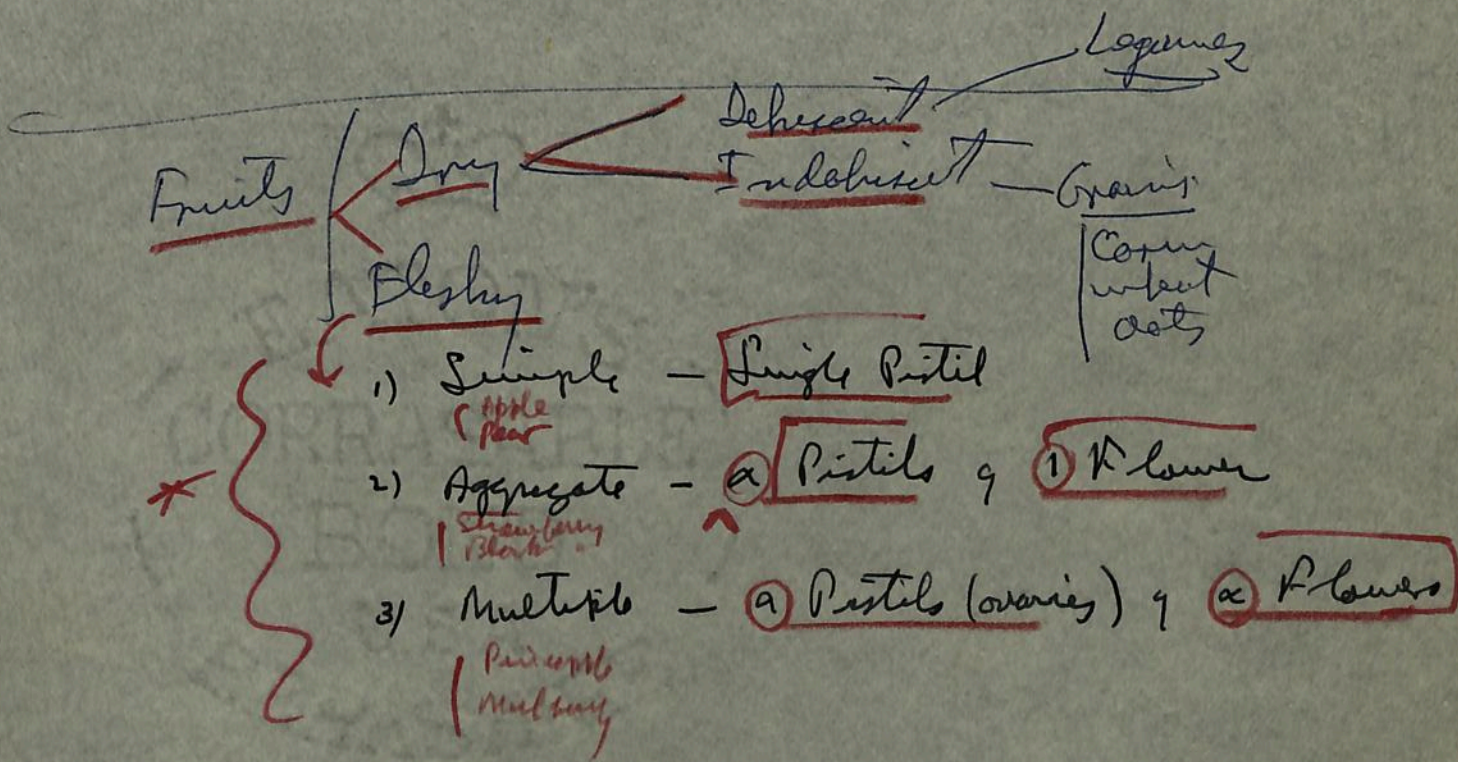 Legumes
Dehiscent
Fruits Dry Indehiscent — Grains
Corn
wheat
oats
Fleshy
1) Simple — Single Pistil
Apple
Pear
2) Aggregate - α Pistils of 1 Flower
Strawberry
Black "
3) Multiple — α Pistils (ovaries) of α Flowers
Pineapple
Mulberry